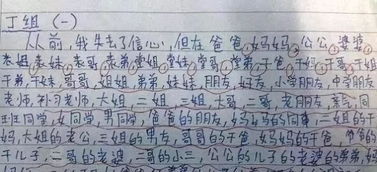 丁组 (一)
从前,我失去了信心,但在爸爸,妈妈,公公,婆婆,
表姐,表妹,表哥,表弟,堂姐,堂妹,堂哥,堂弟,干爸,干妈,干哥,干姐
干弟,干妹,哥哥,姐姐,弟弟,妹妹,朋友,好友,小学朋友,中学朋友
老师,补习老师,大姐,二姐,三姐,大哥,二哥,老朋友,亲戚,同
班同学,女同学,男同学,爸爸的朋友,妈妈的同事,三姐的干
妈,大姐的老公,三姐的男友,哥哥的干爸,妈妈的干爸,爸爸的
干儿子,二哥的老婆,二哥的小三,公公的儿子的老婆的弟弟,妈